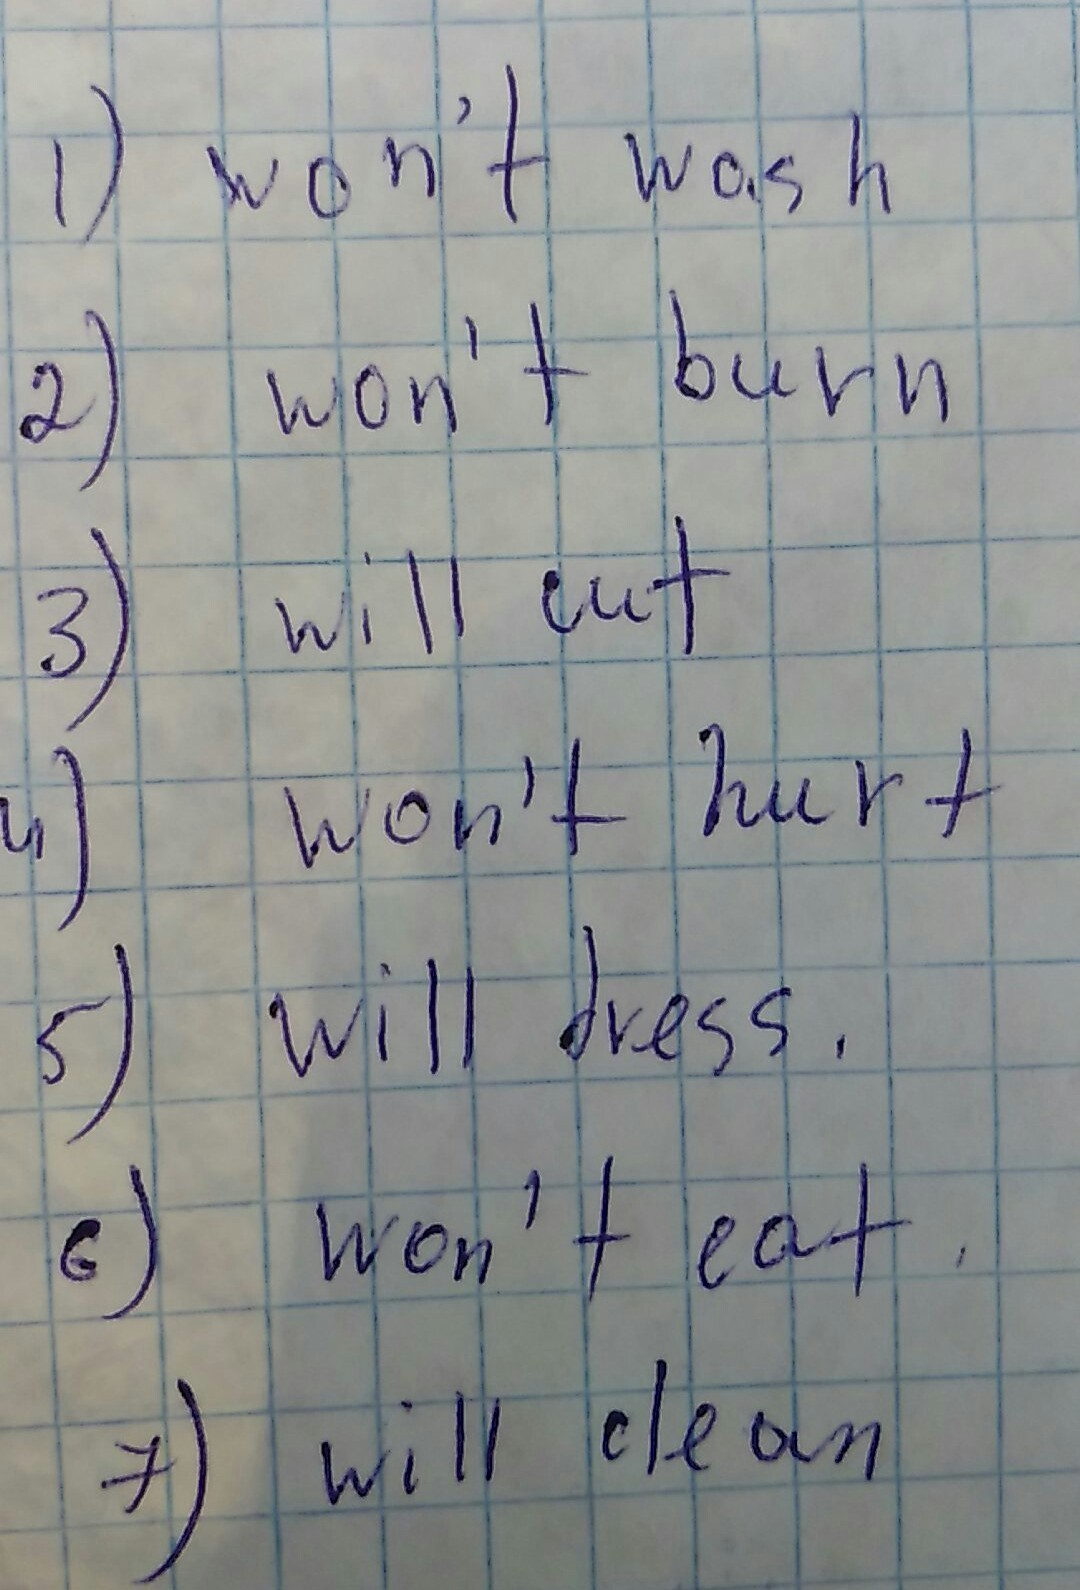 1) won't wash
2) won't burn
3) will cut
4) won't hurt
5) will dress.
6) won't eat.
7) will clean